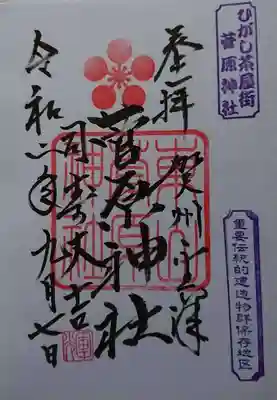 ひがし茶屋街
菅原神社
重要伝統的建造物群保存地区
奉拝
賀州金澤
菅原神社
東山
菅原
神社
令和六年九月七日